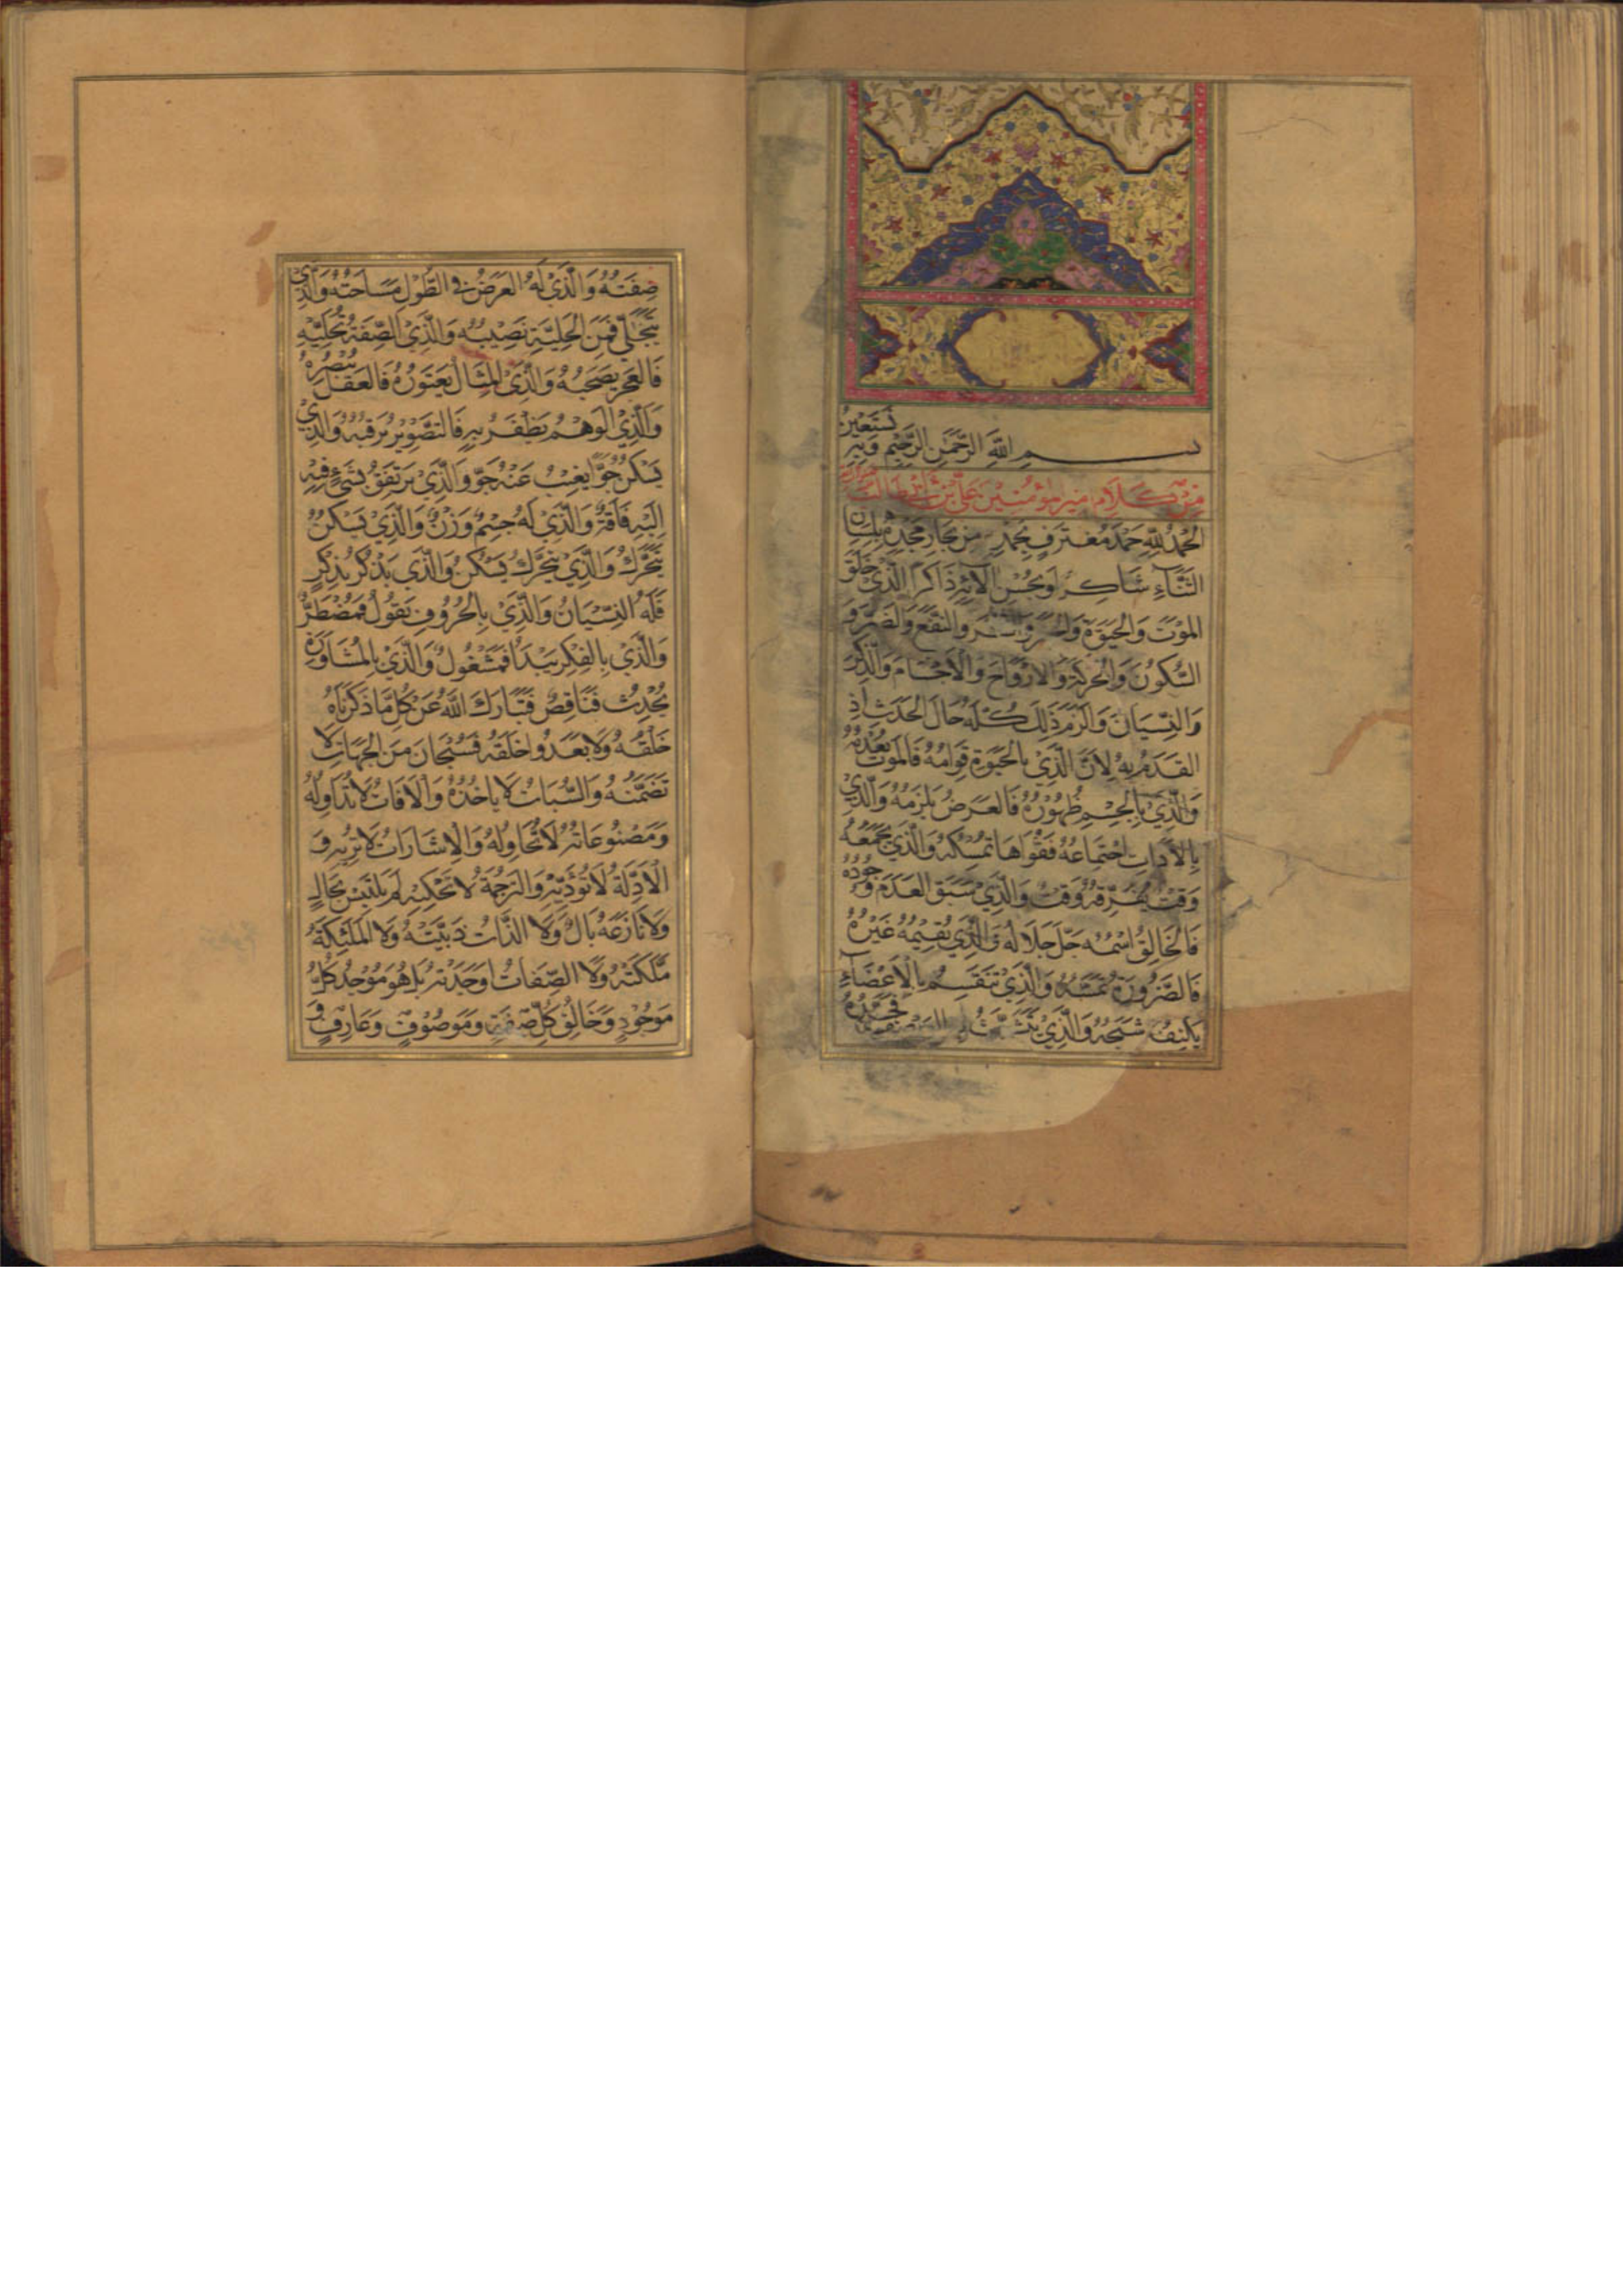 بسم الله الرحمن الرحيم وبه نستعين
من كلام امير مؤمنين علي بن ابي طالب
الحَمْدُ لِلّٰهِ حَمْدَ مُعْتَرِفٍ بِحَمْدِهِ مِنْ بِحَارِ مَجْدِهِ بِلِسَانِ
الثَّنَاءِ شَاكِرٍ وَلِحُسْنِ آلَائِهِ ذَاكِرًا الَّذِي خَلَقَ
المَوْتَ وَالحَيٰوةَ وَالخَيْرَ وَالشَّرَّ وَالنَّفْعَ وَالضَّرَّ وَ
السُّكُونَ وَالحَرَكَةَ وَالاَرْوَاحَ وَالاَجْسَامَ وَالذِّكْرَ
وَالنِّسْيَانَ وَالزَمَ ذٰلِكَ كُلَّهُ حَالَ الحَدَثِ اِذِ
القِدَمُ لَهُ لِاَنَّ الَّذِي بِالحَيٰوةِ قِوَامُهُ فَالمَوْتُ يُعْدِمُهُ
وَالَّذِي بِالجِسْمِ ظُهُورُهُ فَالعَرَضُ يَلْزَمُهُ وَالَّذِي
بِالاَدَاتِ اجْتِمَاعُهُ فَقُوَاهَا تُمْسِكُهُ وَالَّذِي يَجْمَعُهُ
وَقْتٌ يُفَرِّقُهُ وَقْتٌ وَالَّذِي سَبَقَ العَدَمَ وُجُودُهُ
فَالخَالِقُ اسْمُهُ جَلَّ جَلَالُهُ وَالَّذِي يُقِيمُهُ غَيْرُهُ
فَالضَّرُورَةُ تَمَسُّهُ وَالَّذِي تَنْقَسِمُ بِالاَعْضَاءِ
يَكْنِفُهُ شَبَحُهُ وَالَّذِي
صِفَتُهُ وَالَّذِي لَهُ العَرْضُ فِي الطُّولِ مَسَاحَتُهُ وَالَّذِي
يَتَجَلَّى فَمِنَ الحِليَةِ نَصِيبُهُ وَالَّذِي الصِّفَةُ تُحَلِّيْهِ
فَالعَجْزُ يَصْحَبُهُ وَالَّذِي المِثَالُ يَعْتَوِرُهُ فَالعَقْلُ يُبْصِرُهُ
وَالَّذِي الوَهْمُ يَظْفَرُ بِهِ فَالتَّصْوِيرُ يَرْقُبُهُ وَالَّذِي
يَسْكُنُ جَوًّا يَغِيبُ عَنْهُ جَوٌّ وَالَّذِي يَرْتَفِقُ بِشَيْءٍ فَفِيهِ
اِلَيْهِ فَاقَةٌ وَالَّذِي لَهُ جِسْمٌ وَزْنٌ وَالَّذِي يَسْكُنُ
يَتَحَرَّكُ وَالَّذِي يَتَحَرَّكُ يَسْكُنُ وَالَّذِي يَذْكُرُ بِذِكْرٍ
فَلَهُ النِّسْيَانُ وَالَّذِي بِالحُرُوفِ يَقُولُ فَمُضْطَرٌّ
وَالَّذِي بِالفِكْرِ يَبْدَأُ فَمَشْغُولٌ وَالَّذِي بِالمُشَاوَرَةِ
يُحْدِثُ فَنَاقِصٌ فَتَبَارَكَ اللّٰهُ عَنْ كُلِّ مَا ذَكَرْنَاهُ
خَلْقُهُ وَلَا يَعْدُوا خَلْقَهُ فَسُبْحَانَ مَنِ الجِهَاتُ لَا
تَضَمَّنُهُ وَالسُّبَاتُ لَا يَاخُذُهُ وَالآفَاتُ لَا تُدَاوِلُهُ
وَمَصْنُوعَاتُهُ لَا تُحَاوِلُهُ وَالاِشَارَاتُ لَا تُرِيهِ وَ
الاَدِلَّةُ لَا تُؤَدِّيهِ وَالتَّرْجَمَةُ لَا تَحْكِيهِ لَمْ يَلْتَبِسْ بِحَالٍ
وَلَا نَازَعَهُ بَالٌ وَلَا الذَّاتُ ذَيَّتَتْهُ وَلَا المَلٰئِكَةُ
مَلَّكَتْهُ وَلَا الصِّفَاتُ اَوْجَدَتْهُ بَلْ هُوَ مُوجِدُ كُلِّ
مَوْجُودٍ وَخَالِقُ كُلِّ صِفَةٍ وَمَوْصُوفٍ وَعَارِفٍ وَ